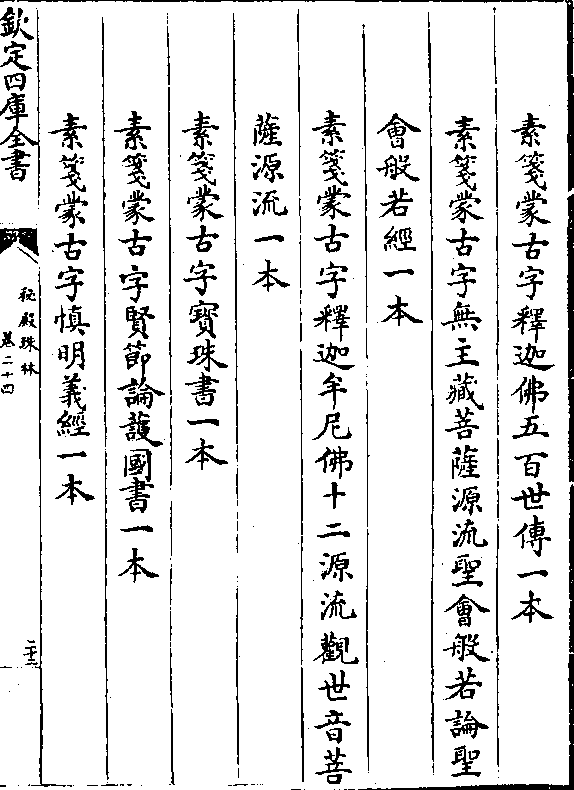 素箋蒙古字釋迦佛五百世傳一本
素箋蒙古字無主藏菩薩源流聖會般若論聖
會般若經一本
素箋蒙古字釋迦牟尼佛十二源流觀世音菩
薩源流一本
素箋蒙古字寶珠書一本
素箋蒙古字賢節論護國書一本
素箋蒙古字慎明義經一本
欽定四庫全書
秘殿珠林
卷二十四
二十三